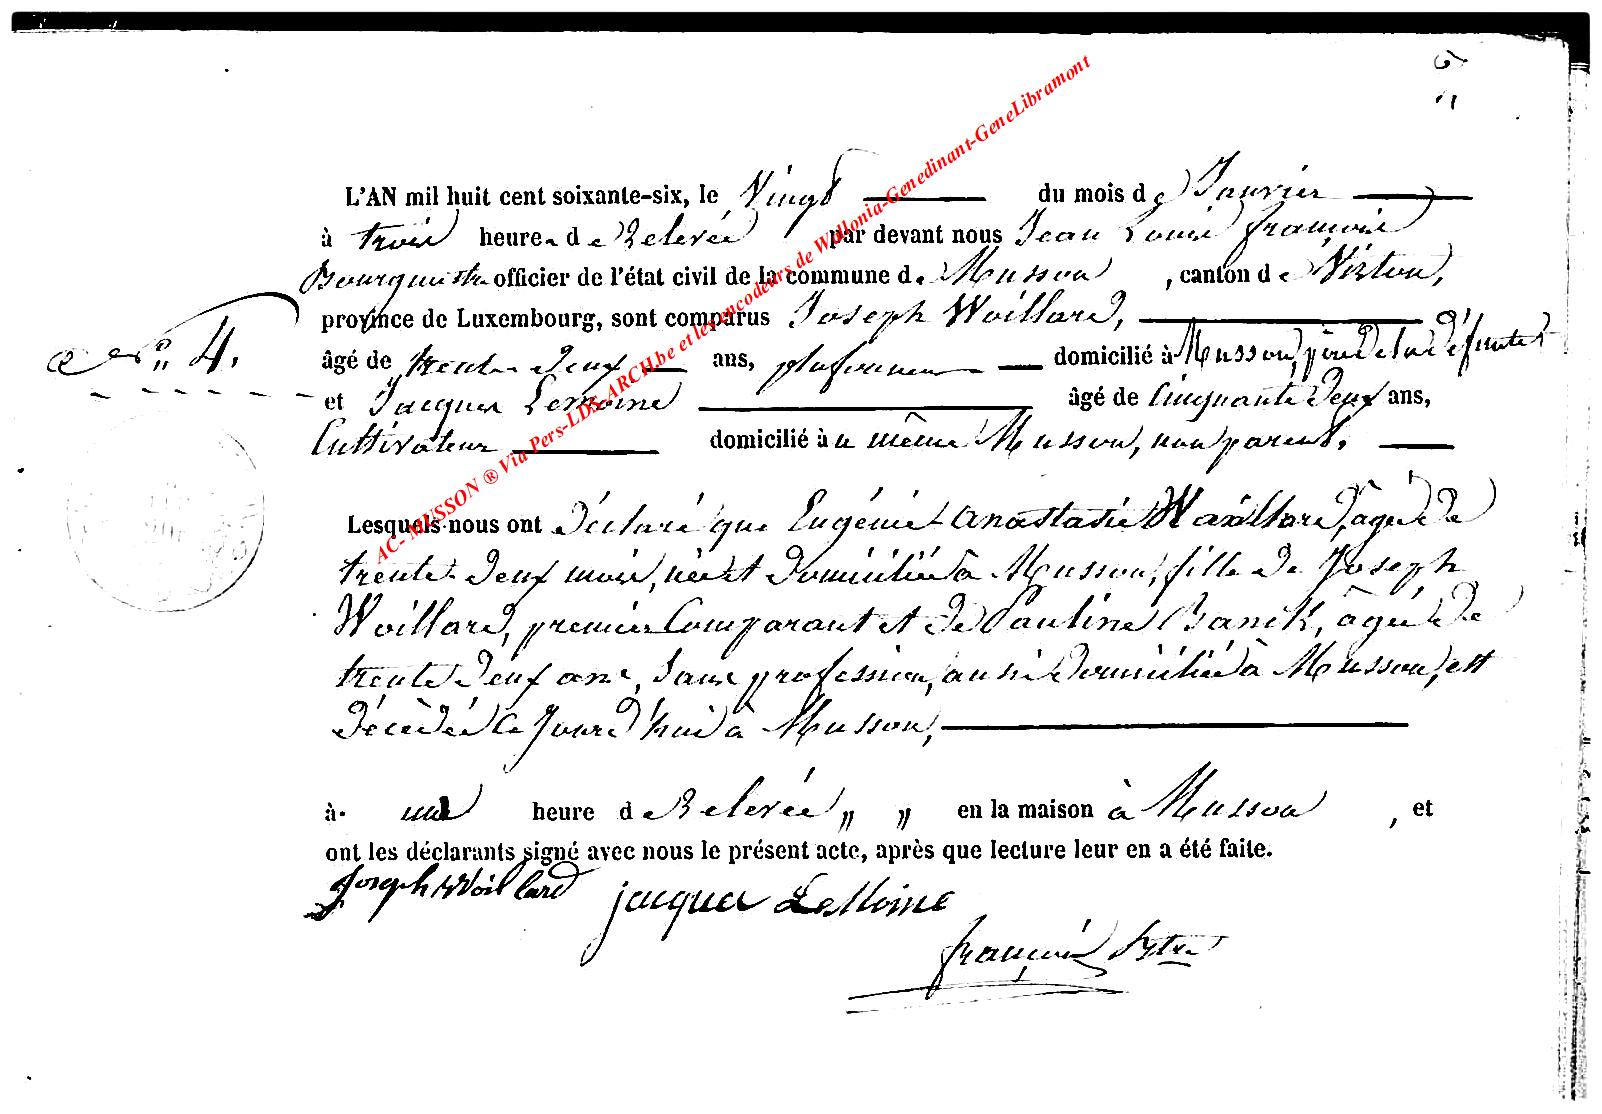 L'AN mil huit cent soixante-six, le Vingt du mois de Janvier
à trois heures de Relevée par devant nous Jean Louis françois
Bourgmestre officier de l'état civil de la commune de Musson, canton de Virton,
province de Luxembourg, sont comparus Joseph Woillard,
N° 4.
âgé de trente deux ans, plafonneur domicilié à Musson, père de la défunte
et Jacques Lemoine âgé de Cinquante deux ans,
Cultivateur domicilié à u même Musson, non parent.
Lesquels nous ont déclaré que Eugénie Anastasie Woillard, âgée de
trente deux mois, née et domiciliée à Musson, fille de Joseph
Woillard, premier Comparant et de Pauline Banck, âgée de
trente deux ans, sans profession, aussi domiciliée à Musson, est
décèdée ce jourd'hui à Musson,
à une heure de Relevée " " en la maison à Musson, et
ont les déclarants signé avec nous le présent acte, après que lecture leur en a été faite.
Joseph Woillard Jacques LeMoine
françois Bgtre
AC- MUSSON ® Via Pers-LDS-ARCH.be et les encodeurs de Wallonia-Genedinant-GeneLibramont